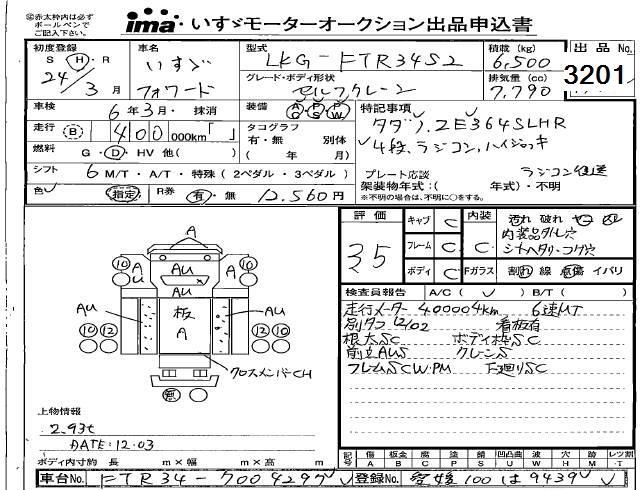 ㊟赤太枠内は必ず
ボールペンで
ご記入ください。
ima いすゞモーターオークション出品申込書
初度登録 S・Ⓗ・R 24/3月
車名 いすゞ フォワード
型式 LKG-FTR34S2
積載(kg) 6,500
出品No. 3201
グレード・ボディ形状 セルフクレーン
排気量(cc) 7,790
車検 6年3月・抹消
装備 AC PS PW
特記事項
走行 Ⓑ 400 000km「 」
タコグラフ 有・無 別体
タダノ、ZE364SLHR
燃料 G・Ⓓ・HV 他( )
( 年 月)
4段、ラジコン、ハイジャッキ
シフト 6 M/T・A/T・特殊(2ペダル・3ペダル)
プレート応談 ラジコン
架装物年式:( 年式)・不明
※不明の場合は、不明に○をする。
色 指定 R券 有・無 12,560円
評価 3.5
キャブ C 内装 C
汚れ 破れ
フレーム C
内装品ダレ穴
シートヘタリ・コゲ穴
ボディ C Fガラス 割れ 線 点傷 イバリ
検査員報告 A/C( ✓ ) B/T( )
走行メーター400004km 6速MT
別タコ12/02 看板有
根太SC ボディ枠SC
前立AUS クレーンS
フレームSCW・PM 下廻りSC
A
⑩ A AU A ⑩
AU
AU 板 A AU
⑩ ⑫ ⑫ ⑩
クロスメンバーCH
無
上物情報
2.93t
DATE:12.03
ボディ内寸約 長 m×幅 m×高 m
記号 傷A 板金B 腐C 塗P 錆S 凹凸曲U 波W 穴H 跡M レツ割T
車台No. FTR34-7004297
登録No. 愛媛100は9439